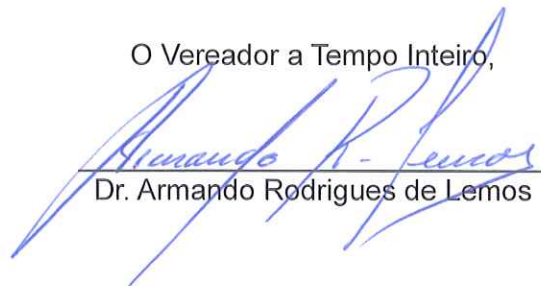 O Vereador a Tempo Inteiro,
Armando R. Lemos
Dr. Armando Rodrigues de Lemos